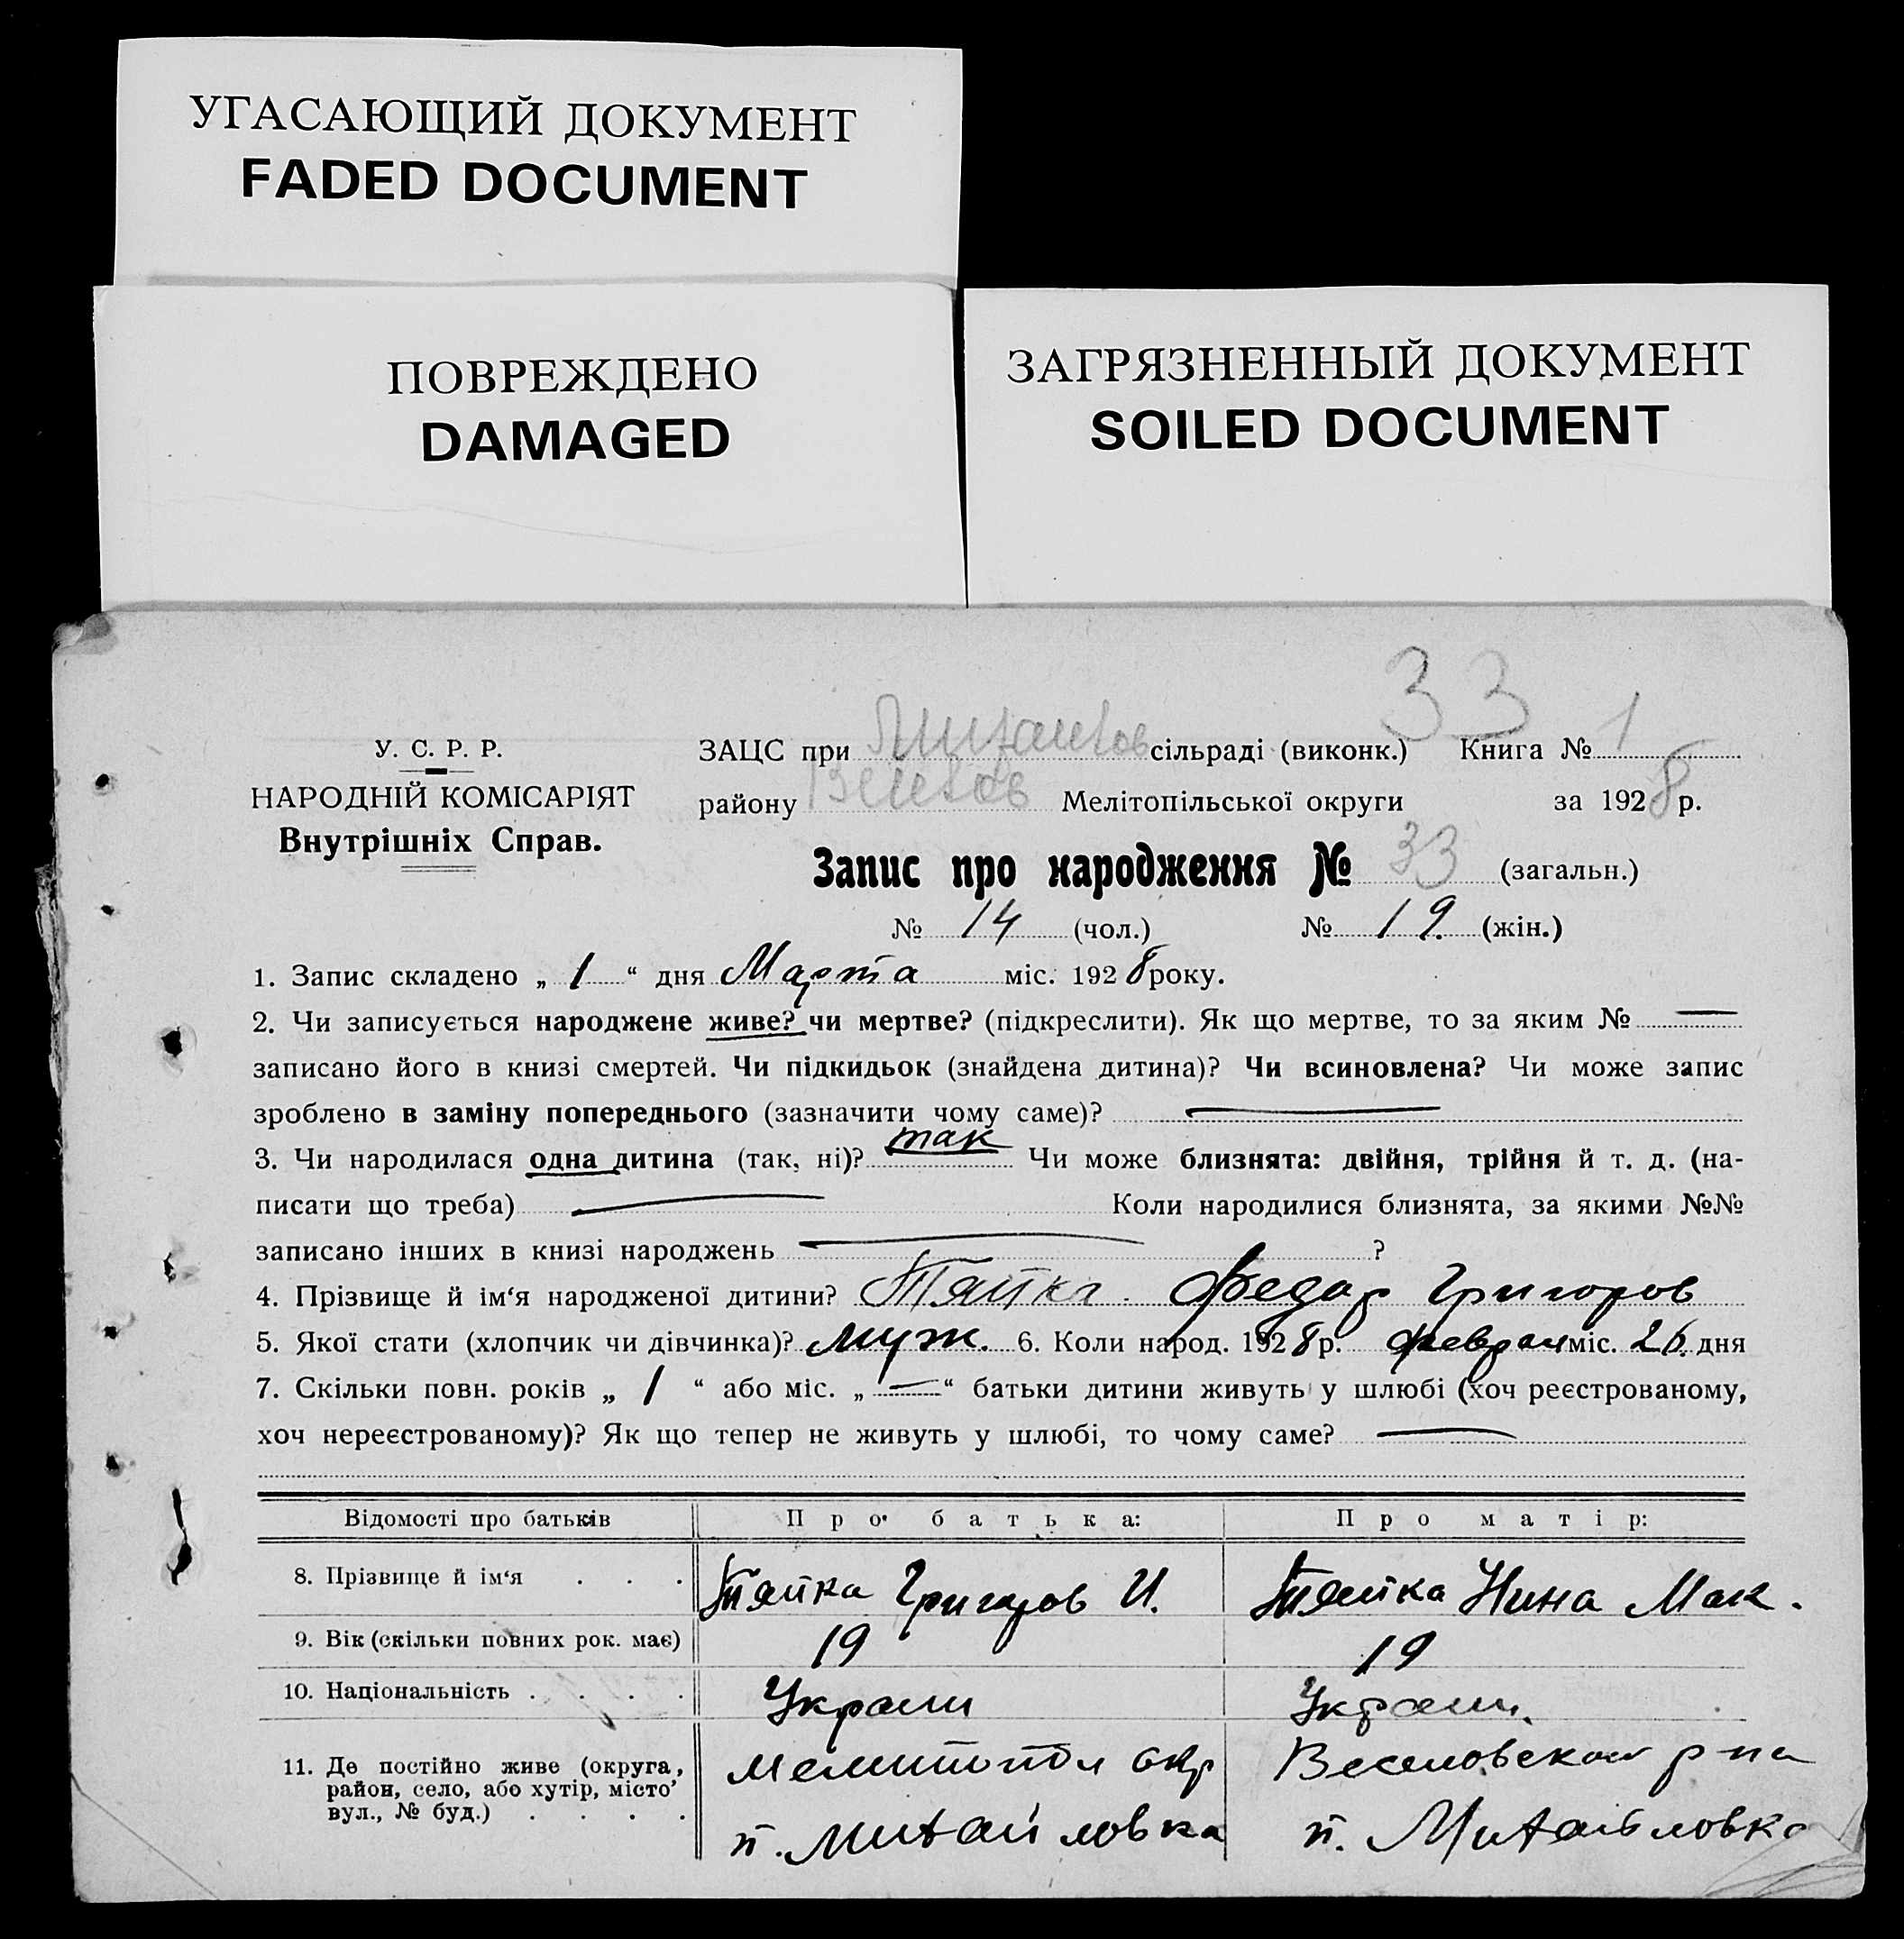 УГАСАЮЩИЙ ДОКУМЕНТ
FADED DOCUMENT
ПОВРЕЖДЕНО
DAMAGED
ЗАГРЯЗНЕННЫЙ ДОКУМЕНТ
SOILED DOCUMENT
33
У. С. Р. Р.
НАРОДНІЙ КОМІСАРІЯТ
Внутрішніх Справ.
ЗАЦС при сільраді (виконк.) Книга № 1
району Мелітопільської округи за 1928 р.
Запис про народження № 33 (загальн.)
№ 14 (чол.) № 19. (жін.)
1. Запис складено „ 1 “ дня Марта міс. 1928 року.
2. Чи записується народжене живе? чи мертве? (підкреслити). Як що мертве, то за яким № —
записано його в книзі смертей. Чи підкидьок (знайдена дитина)? Чи всиновлена? Чи може запис
зроблено в заміну попереднього (зазначити чому саме)? —
3. Чи народилася одна дитина (так, ні)? так Чи може близнята: двійня, трійня й т. д. (на-
писати що треба) — Коли народилися близнята, за якими №№
записано інших в книзі народжень — ?
4. Прізвище й ім‘я народженої дитини? Федор Григоров
5. Якої стати (хлопчик чи дівчинка)? муж. 6. Коли народ. 1928 р. міс. 26. дня
7. Скільки повн. років „ 1 “ або міс. „ — “ батьки дитини живуть у шлюбі (хоч реєстрованому,
хоч нереєстрованому)? Як що тепер не живуть у шлюбі, то чому саме? —
Відомості про батьків Про батька: Про матір:
8. Прізвище й ім‘я . . . Григоров И. Нина Мак.
9. Вік (скільки повних рок. має) 19 19
10. Національність . . . . Украин Украин.
11. Де постійно живе (округа,
район, село, або хутір, місто’
вул., № буд.) . . . .
Мелитопол окр
п. Михайловка
Веселовском р-на
п. Михайловка